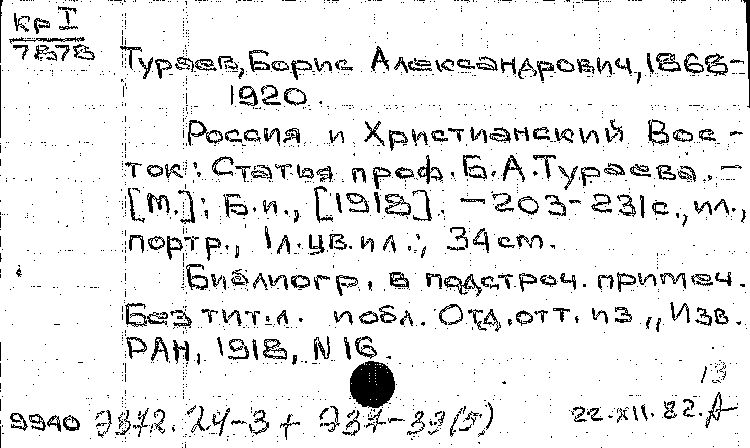 КрI
7878
Тураев, Борис Александрович, 1868-
1920.
Россия и Христианский Вос-
ток: Статья проф. Б.А.Тураева. —
[М.]: Б.и., [1918]. — 203-231с., ил.,
портр., 1л.цв.ил.; 34см.
Библиогр. в подстроч. примеч.
Без тит.л. и обл. Отд.отт. из „Изв.
РАН, 1918, N16.
13
9940 Э372.24-3 + Э37-39(5)
22.XII.82.